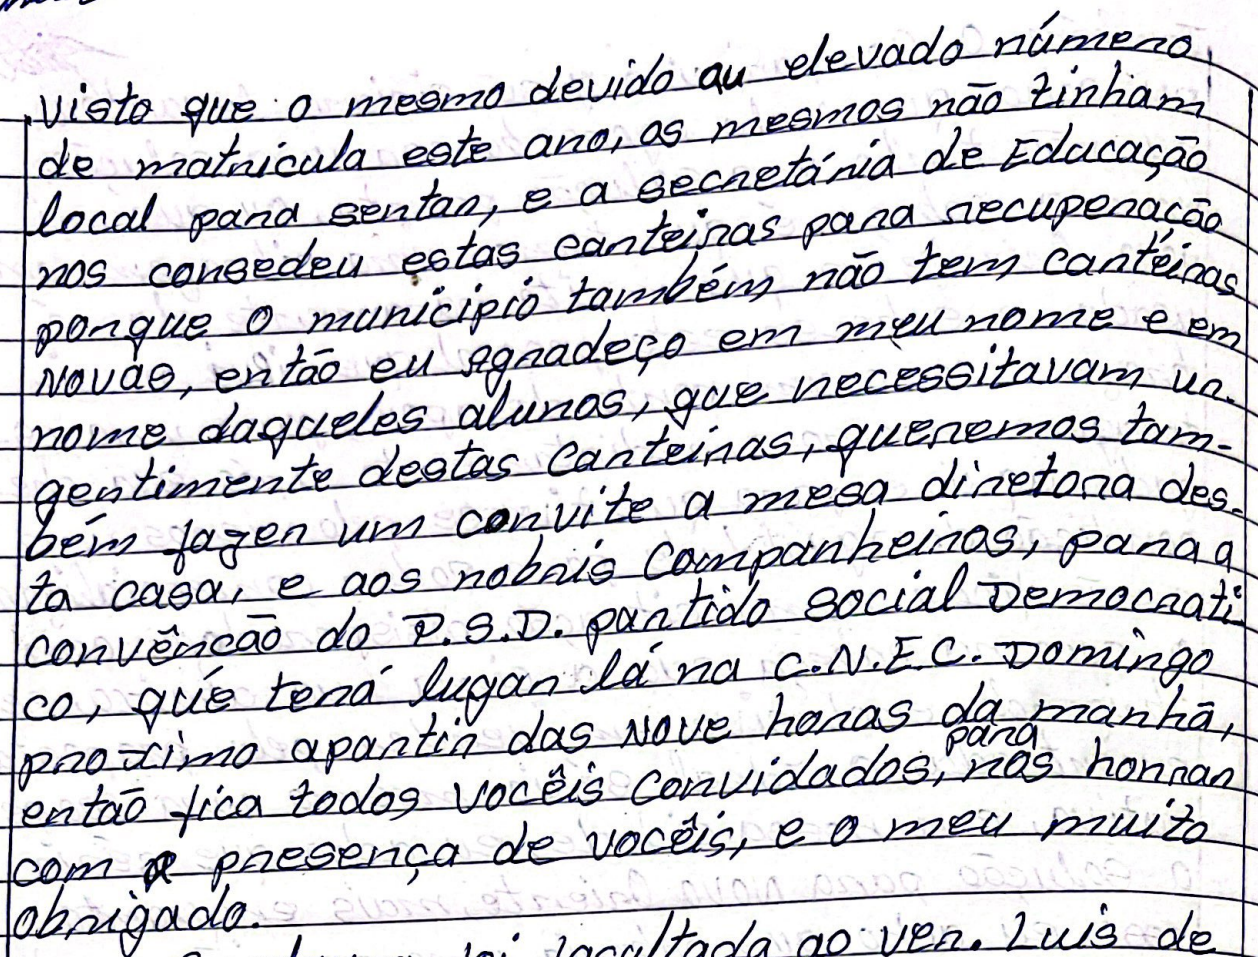 visto que o mesmo devido au elevado número
de matricula este ano, os mesmos não tinham
local para sentar, e a secretária de Educação
nos consedeu estas carteiras para recuperação
porque o municipio também não tem cartéiras
Novas, então eu agradeço em meu nome e em
nome daqueles alunos, que necessitavam ur-
gentimente destas Carteiras, queremos tam-
bém fazer um convite a mesa diretora des-
ta casa, e aos nobris Companheiros, para a
convênção do P.S.D. partido social Democrati-
co, que terá lugar lá na C.N.E.C. Domingo
proximo apartir das Nove horas da manhã,
então fica todos vocêis convidados, para nos honrar
com a presença de vocêis, e o meu muito
obrigado.
foi facultada ao ver. Luis de